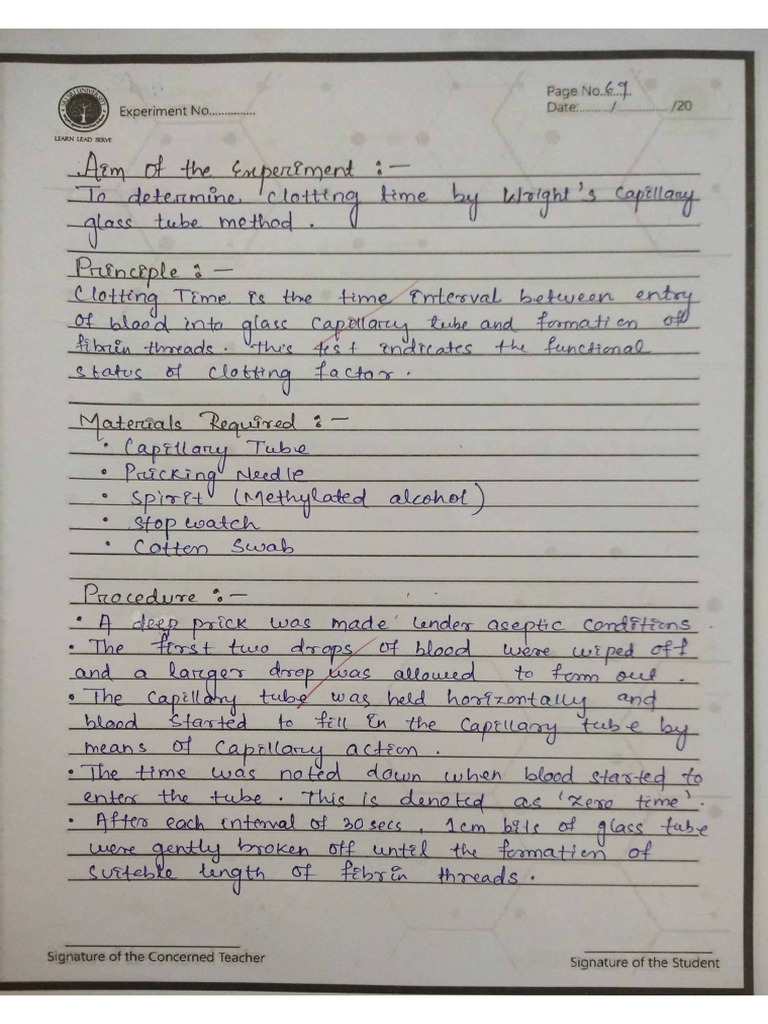 LEARN LEAD SERVE
Experiment No..............
Page No. 67
Date:........../................/20
Aim of the Experiment :-
To determine clotting time by Wright's Capillary
glass tube method.
Principle :-
Clotting Time is the time interval between entry
of blood into glass capillary tube and formation of
fibrin threads. This test indicates the functional
status of clotting factor.
Materials Required :-
• Capillary Tube
• Pricking Needle
• Spirit (Methylated alcohol)
• Stop watch
• Cotten Swab
Procedure :-
• A deep prick was made under aseptic conditions
• The first two drops of blood were wiped off
and a larger drop was allowed to form out.
• The capillary tube was held horizontally and
blood started to fill in the capillary tube by
means of capillary action.
• The time was noted down when blood started to
enter the tube. This is denoted as 'zero time'.
• After each interval of 30 secs, 1cm bits of glass tube
were gently broken off until the formation of
suitable length of fibrin threads.
Signature of the Concerned Teacher
Signature of the Student